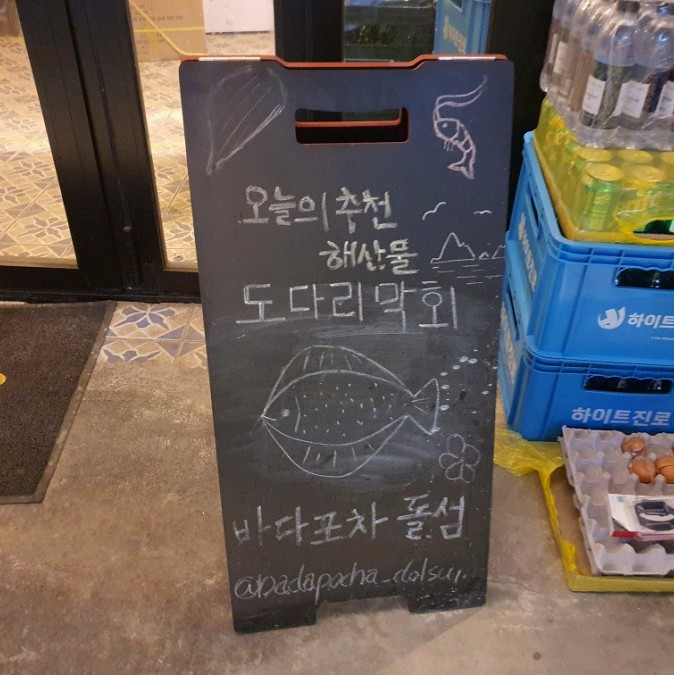 오늘의 추천
해산물
도다리막회
바다포차 돌섬
하이트진로